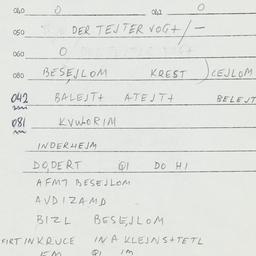 040 0 062 0
050 DER TEJTER VOGT/—
060 0
080 BESEJLOM KREST )CEJLOM
042 BALEJT+ ATEJT+ BELEJT
081 KVWORIM
INDERHEJM
DO,DERT QI DO HI
AFMT BESEJLOM
AVDIZAMD
BIZL BESEJLOM
FIRT IN KRUCE IN A KLEJNS+TETL